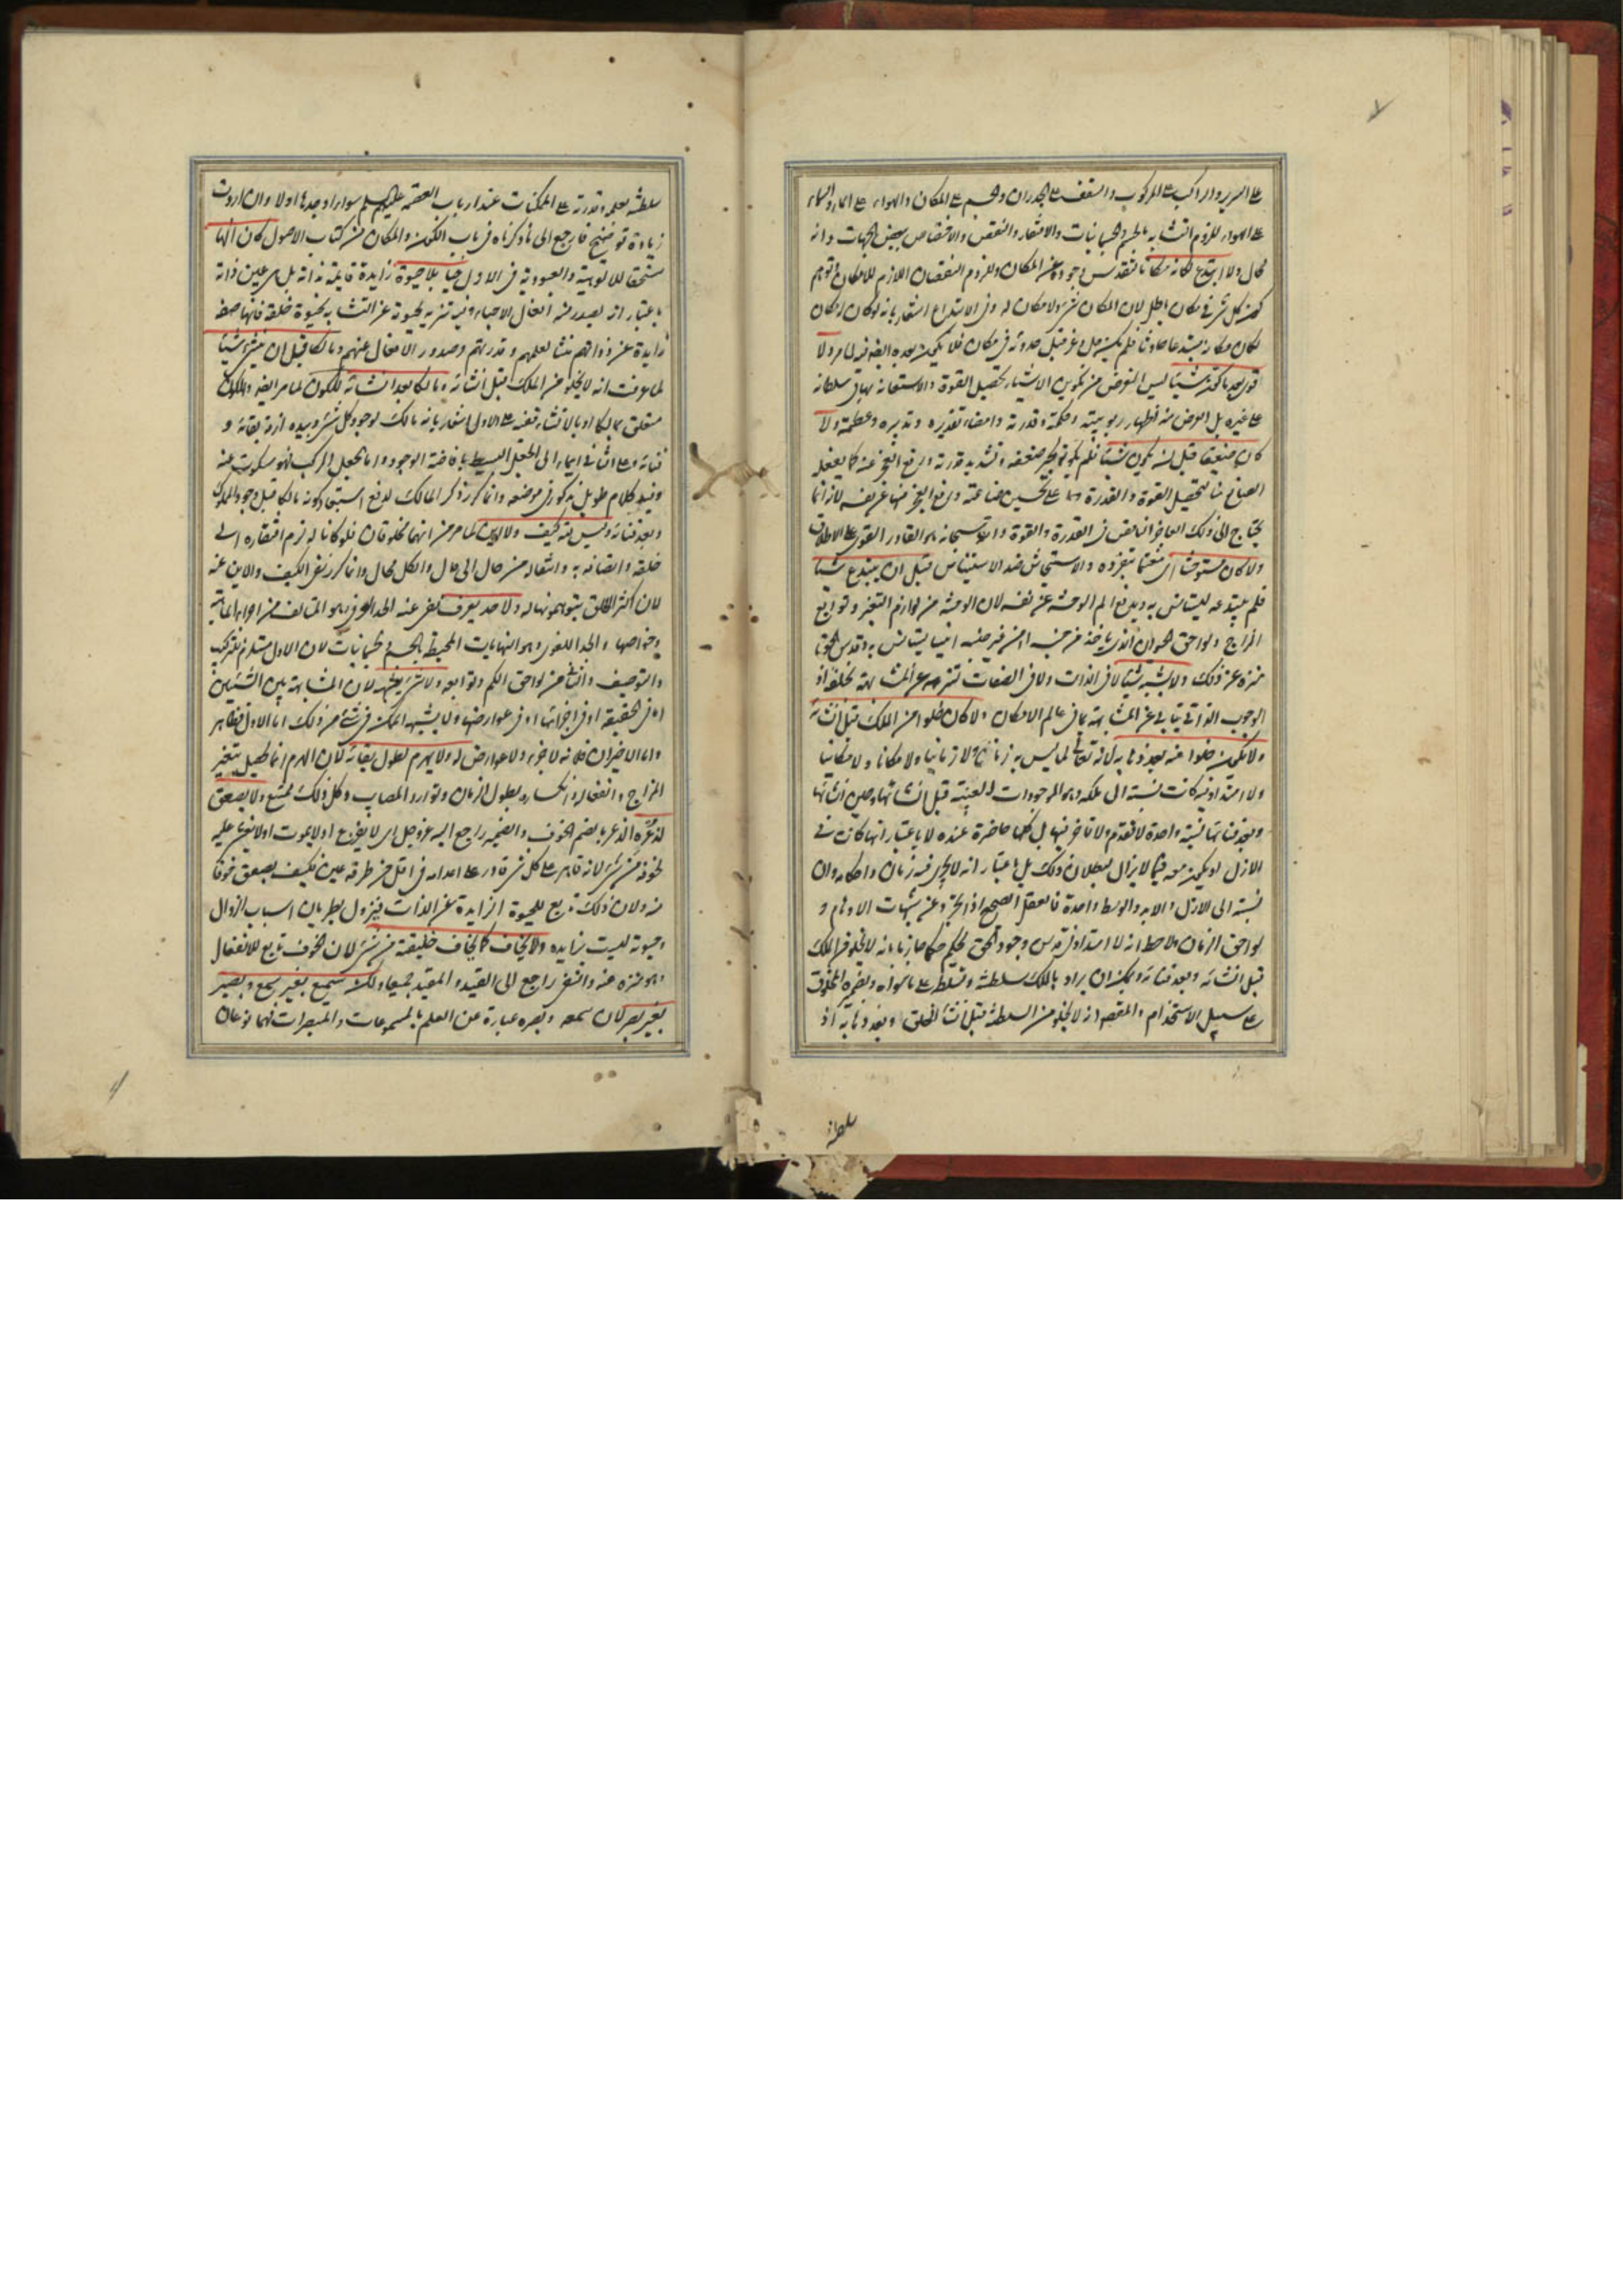 على السرير والراكب على المركوب والسقف على الجدران والجسم على المكان والهواء على الماء والسماء
على الهواء للزوم التشابه بالجسم والجسمانيات والافتقار والنقص والاختصاص ببعض الجهات وانه
محال ولا ابتدع لمكانه مكانا لتقدس وجوده عن المكان ولزوم النقصان اللازم للامكان وتوهم
كون كل شئ في مكان باطل لان المكان شئ ولا مكان له وفي الابتداع اشعار بانه لو كان له مكان
لكان مكانه مبتدعا حادثا فلم يكن هو عز وجل قبل حدوثه في مكان فلا يكون بعده ايضا فيه لما مر ولا
قوى بعد ما كون شيئا ليس الغرض من تكوين الاشياء تحصيل القوة والاستعانة بها في سلطانه
على غيره بل الغرض منه اظهار ربوبيته وحكمته وقدرته وامضاء تقديره وتدبيره وعظمته ولا
كان ضعيفا قبل ان يكون شيئا فلم يكونه لجبر ضعفه وتشديد قدرته ورفع العجز عنه كما يفعله
الصانع منا لتحصيل القوة والقدرة على تحسين صناعته ورفع العجز عن نفسه لانه انما
يحتاج الى ذلك العاجز الناقص في القدرة والقوة والله سبحانه هو القادر القوى على الاطلاق
ولا كان مستوحشا اي مغتما بتفرده والاستيحاش ضد الاستيناس قبل ان يبتدع شيئا
فلم يبتدعه ليستانس به ويدفع الم الوحشة عن نفسه لان الوحشة من لوازم التغير وتوابع
المزاج ولواحق الحيوان الذي ياخذ من جنسه او من غير جنسه انيسا يستانس به وقدس الحق
منزه عن ذلك ولا يشبه شيئا لا في الذات ولا في الصفات لتنزهه عن المشابهة بخلقه اذ
الوجوب الذاتي يتابى عن المشابهة بما في عالم الامكان ولا كان خلوا من الملك قبل انشائه
ولا يكون خلوا منه بعد ذهابه لانه تعالى لما ليس بزمان ولا زمانيا ولا مكانا ولا مكانيا
ولا امتداد فيه كانت نسبته الى ملكه وهو الموجودات العينية قبل انشائها وحين انشائها
وبعد فنائها نسبة واحدة لا تقدم ولا تاخر فيها بل كلها حاضرة عنده لا باعتبار انها كانت في
الازل او يكون معه فيما لا يزال لبطلان ذلك بل باعتبار انه لا يجرى فيه زمان واحكامه وان
نسبته الى الازل والابد والوسط واحدة فالعقل الصحيح اذا تجرد عن شبهات الاوهام و
لواحق الزمان ولاحظ انه لا امتداد في قدس وجود الحق يحكم حكما جازما بانه لا يخلو من الملك
قبل انشائه وبعد فنائه ويمكن ان يراد بالملك سلطنته وتسلطه على ما سواه وبضميره المخلوق
على سبيل الاستخدام والمقصود انه لا يخلو من السلطنة قبل انشاء الخلق وبعد ذهابه اذ
سلطنته
سلطنته بعلمه وقدرته على الممكنات عند ارباب العصمة عليهم السلم سواء اوجدها اولا وان اردت
زيادة توضيح فارجع الى ما ذكرناه في باب الكون والمكان من كتاب الاصول كان الها
مستحقا للالوهية والعبودية في الاول حيا بلا حيوة زايدة قايمة بذاته بل هي عين ذاته
باعتبار انه يصدر منه افعال الاحياء وفيه تنزيه لحيوته عن التشابه بحيوة خلقه فانها صفة
زايدة عن ذواتهم منشا لعلمهم وقدرتهم وصدور الافعال عنهم ومالكا قبل ان ينشئ شيئا
لما عرفت انه لا يخلو من الملك قبل انشائه ومالكا بعد انشائه للكون لما مر ايضا وللكون
متعلق بمالكا او بالانشاء فعلى الاول اشعار بانه مالك لوجود كل شئ وبيده ازمة بقائه و
فنائه وعلى الثاني ايماء الى الجعل البسيط بافاضة الوجود واما الجعل المركب فهو مسكوت عنه
وفيه كلام طويل مذكور في موضعه وانما كرر ذكر المالك لدفع استبعاد كونه مالكا قبل وجود المملوك
وبعد فنائه وليس لله كيف ولا اين لما مر من انهما مخلوقان فلو كانا له لزم افتقاره الى
خلقه واتصافه به وانتقاله من حال الى حال والكل محال وانما كرر نفى الكيف والاين عنه
لان اكثر الخلق يتوهمونهما له ولا حد يعرف نفى عنه الحد العرفى وهو المتالف من اجزاء الماهية
وخواصها والحد اللغوى وهو النهايات المحيطة بالجسم والجسمانيات لان الاول مستلزم للتركيب
والتوصيف والثاني من لواحق الكم وتوابعه ولا شئ يشبهه لان المشابهة بين الشيئين
اما في الحقيقة او في اجزائها او في عوارضها ولا يشبهه الممكن في شئ من ذلك اما الاول فظاهر
واما الاخيران فلانه لا جزء ولا عوارض له ولا يهرم لطول بقائه لان الهرم انما يحصل بتغير
المزاج وانفعاله وانكساره بطول الزمان وتوارد المصايب وكل ذلك ممتنع ولا يصعق
لذعره الذعر بالضم الخوف والضمير راجع اليه عز وجل اى لا يفزع او لا يموت او لا يغشى عليه
لخوفه من شئ لانه قاهر على كل شئ قادر على اعدامه في اقل من طرفة عين فكيف يصعق خوفا
منه ولان ذلك تابع للحيوة الزايدة عن الذات فيزول بطريان اسباب الزوال
وحيوته ليست بزايدة ولا يخاف كما يخاف خليقته من شئ لان الخوف تابع للانفعال
وهو منزه عنه والنفى راجع الى القيد والمقيد جميعا ولكن سميع بغير سمع وبصير
بغير بصر لان سمعه وبصره عبارة عن العلم بالمسموعات والمبصرات فهما نوعان